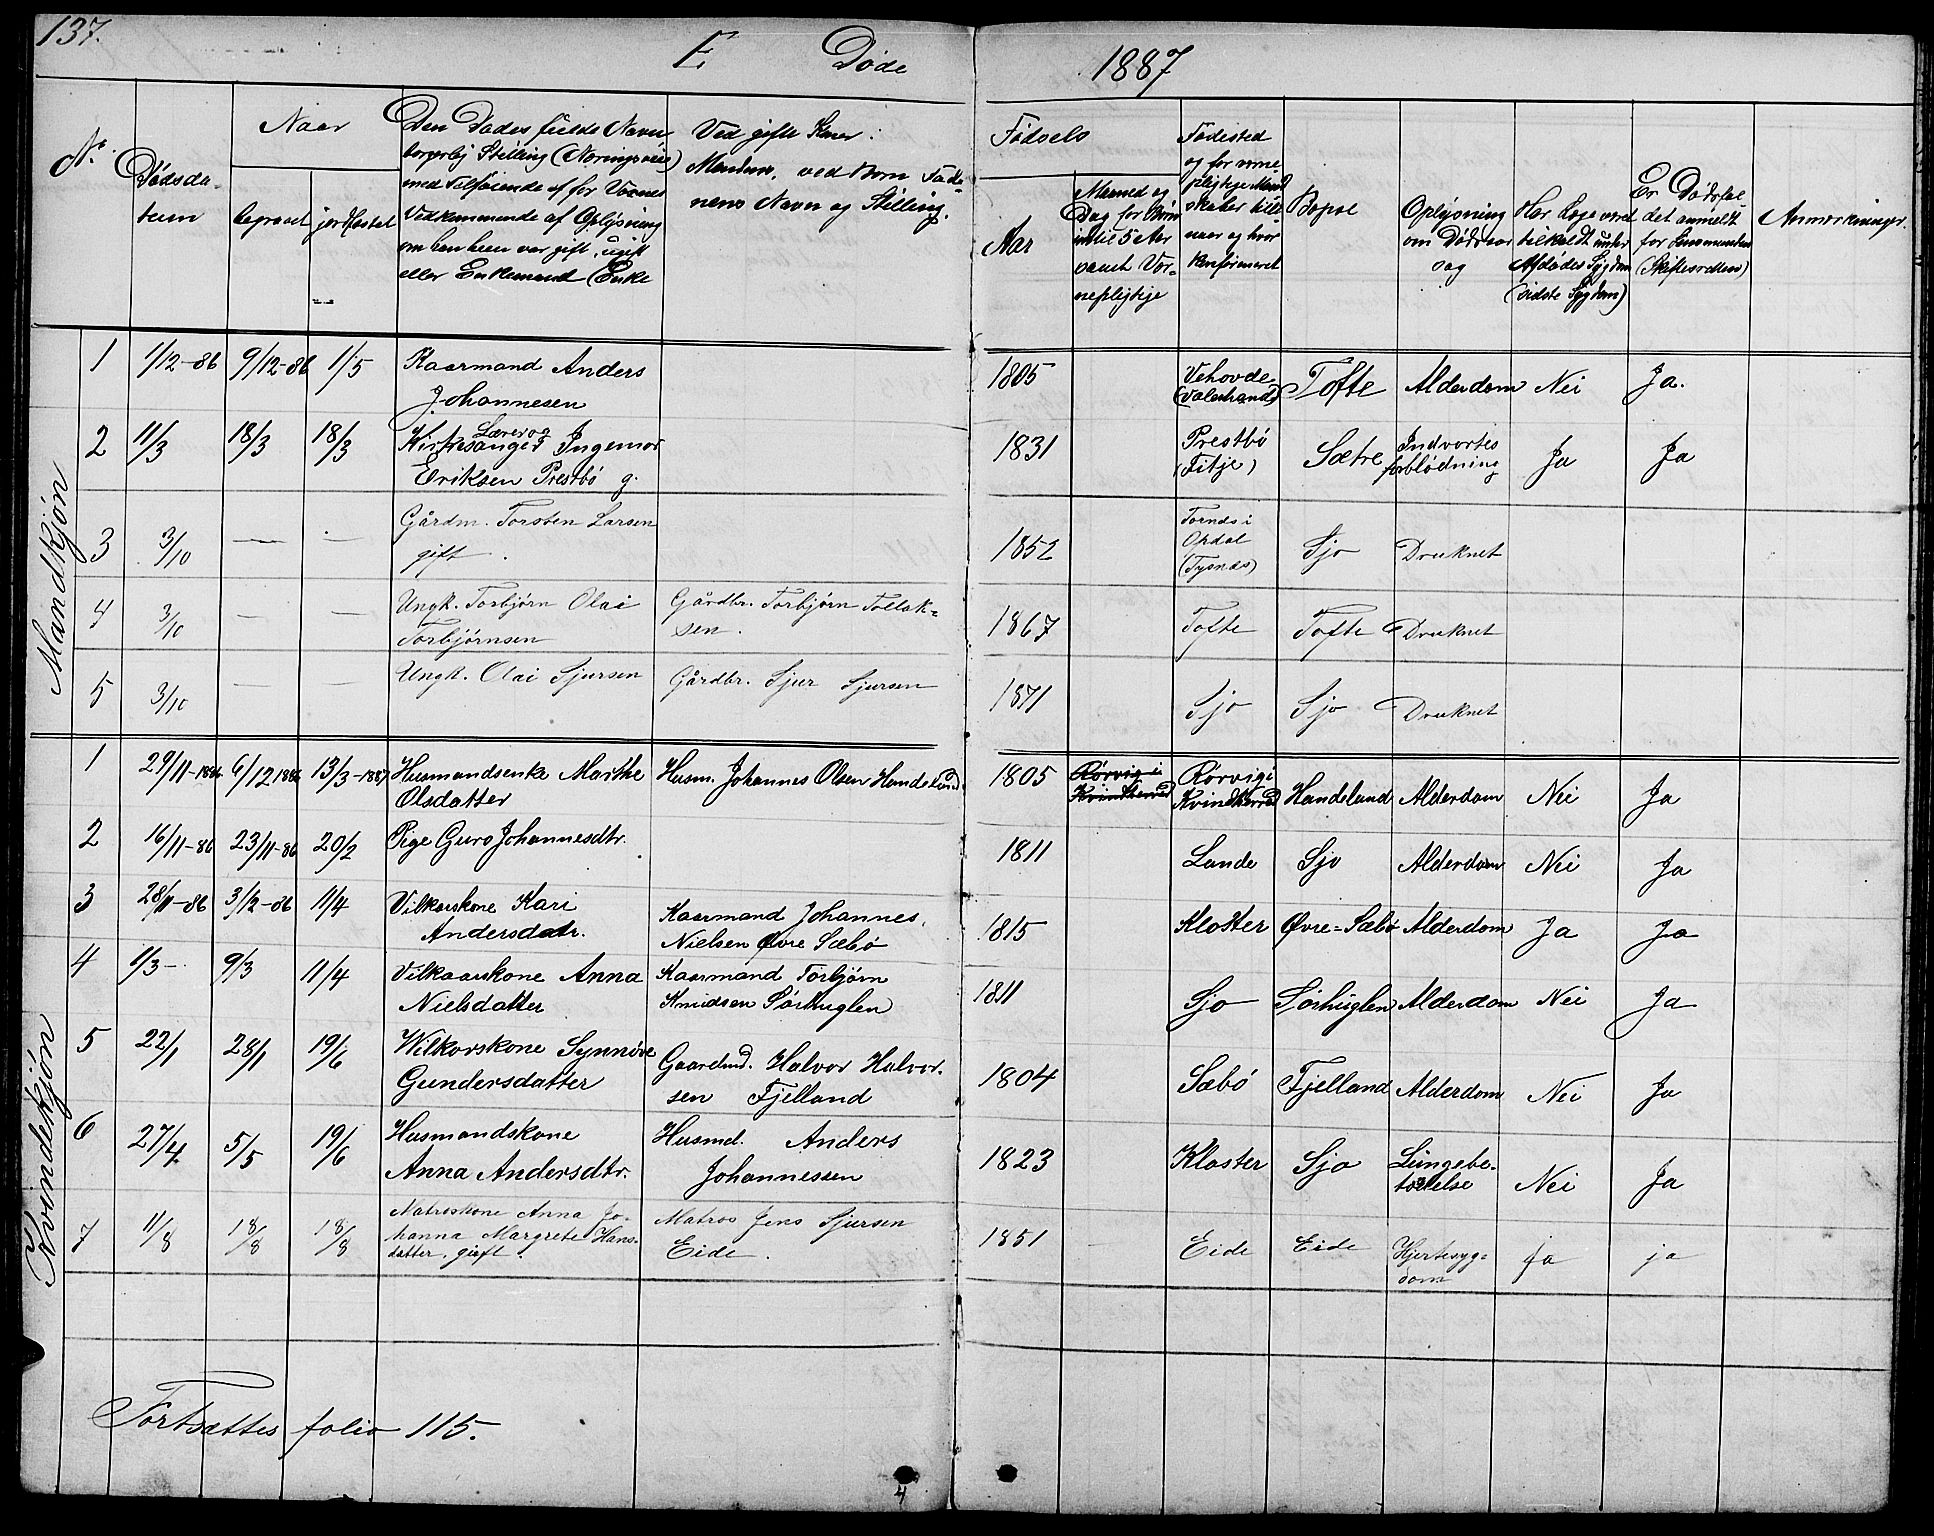 137.
E. Døde 1887
No.
Dødsda-
tum
Naar
begravet
jordfæstet
Den Dødes fulde Navn
borgerlig Stilling (Næringsvei)
med Tilføiende af for Voxnes
Vedkommende af Oplysning
om han hun var gift, ugift
eller Enkemand (Enke
Ved gifte Koner:
Mandens, ved Børn Fade-
rens Navn og Stilling.
Fødsels
Aar
Maaned og
Dag for Børn
indtil 5 Aar
samt Vær-
nepligtige
Fødested
og for værne-
pligtige Mand-
skaber tillige
naar og hvor
konfirmeret
Bopæl
Oplysning
om Dødsaar-
sag
Har Læge været
tilkaldt under
Afdødes Sygdom
(sidste Sygdom)
Er Dødsfal-
det anmeldt
for Lensmanden
(Skifteretten)
Anmærkninger.
Mandkjøn
1 1/12-86 9/12-86 1/5 Kaarmand Anders
Johannesen
1805 Vehovde
(Valestrand) Tofte Alderdom Nei Ja.
2 11/3 18/3 18/3 Lærer og
Kirkesanger Ingemor
Eriksen Prestbø g.
1831 Prestbø
(Fitje) Sætre Indvortes
forblødning Ja Ja
3 3/10 — — Gårdm. Torsten Larsen
gift.
1852 Tornds i
Opdal
(Tysnæs) Sjo Druknet
4 3/10 — — Ungk. Torbjørn Olai
Torbjørnsen
Gårdbr. Torbjørn Tollak-
sen.
1867 Tofte Tofte Druknet
5 3/10 — — Ungk. Olai Sjursen Gårdbr. Sjur Sjursen
1871 Sjo Sjo Druknet
Kvindekjøn
1 29/11-1886 6/12 1886 13/3-1887 Husmandsenke Marthe
Olsdatter
Husm. Johannes Olsen Handeland
1805 Rørvig i
Kvindherred
Rørvig i
Kvindherred Handeland Alderdom Nei Ja
2 16/11-86 23/11-86 20/2 Pige Guro Johannesdtr.
1811 Lande Sjo Alderdom Nei Ja
3 28/11-86 3/12-86 11/4 Vilkarskone Kari
Andersdatr.
Kaarmand Johannes
Nielsen Øvre Sæbø
1815 Kloster Øvre-Sæbø Alderdom Ja Ja
4 1/3- 9/3 11/4 Vilkaarskone Anna
Nielsdatter
Kaarmand Torbjørn
Knudsen Sørhuglen
1811 Sjo Sørhuglen Alderdom Nei Ja
5 22/1 28/1 19/6 Wilkorskone Synnøve
Gundersdatter
Gaardmd. Halvor Halvor-
sen Fjelland
1804 Sæbø Fjelland Alderdom Nei Ja
6 27/4 5/5 19/6 Husmandskone
Anna Andersdtr.
Husmd. Anders
Johannessen
1823 Kloster Sjo Lungebe-
tændelse Nei Ja
7 11/8 18/8 18/8 Matroskone Anna Jo-
hanna Margrete Hans-
datter, gift.
Matros Jens Sjursen
Eide.
1851 Eide Eide Hjertesyg-
dom Ja ja
Fortsættes folio 115.
4